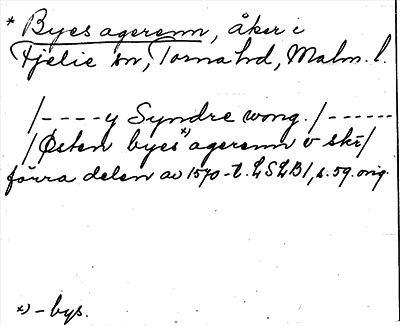 * Byes agerenn, åker i
Fjelie sn, Torna hd, Malm. l.
/----y Syndre wong./------
/Østen byes*) agerenn v ski/
förra delen av 1570-t. LSLB1, s. 59. orig.
*) - bys.